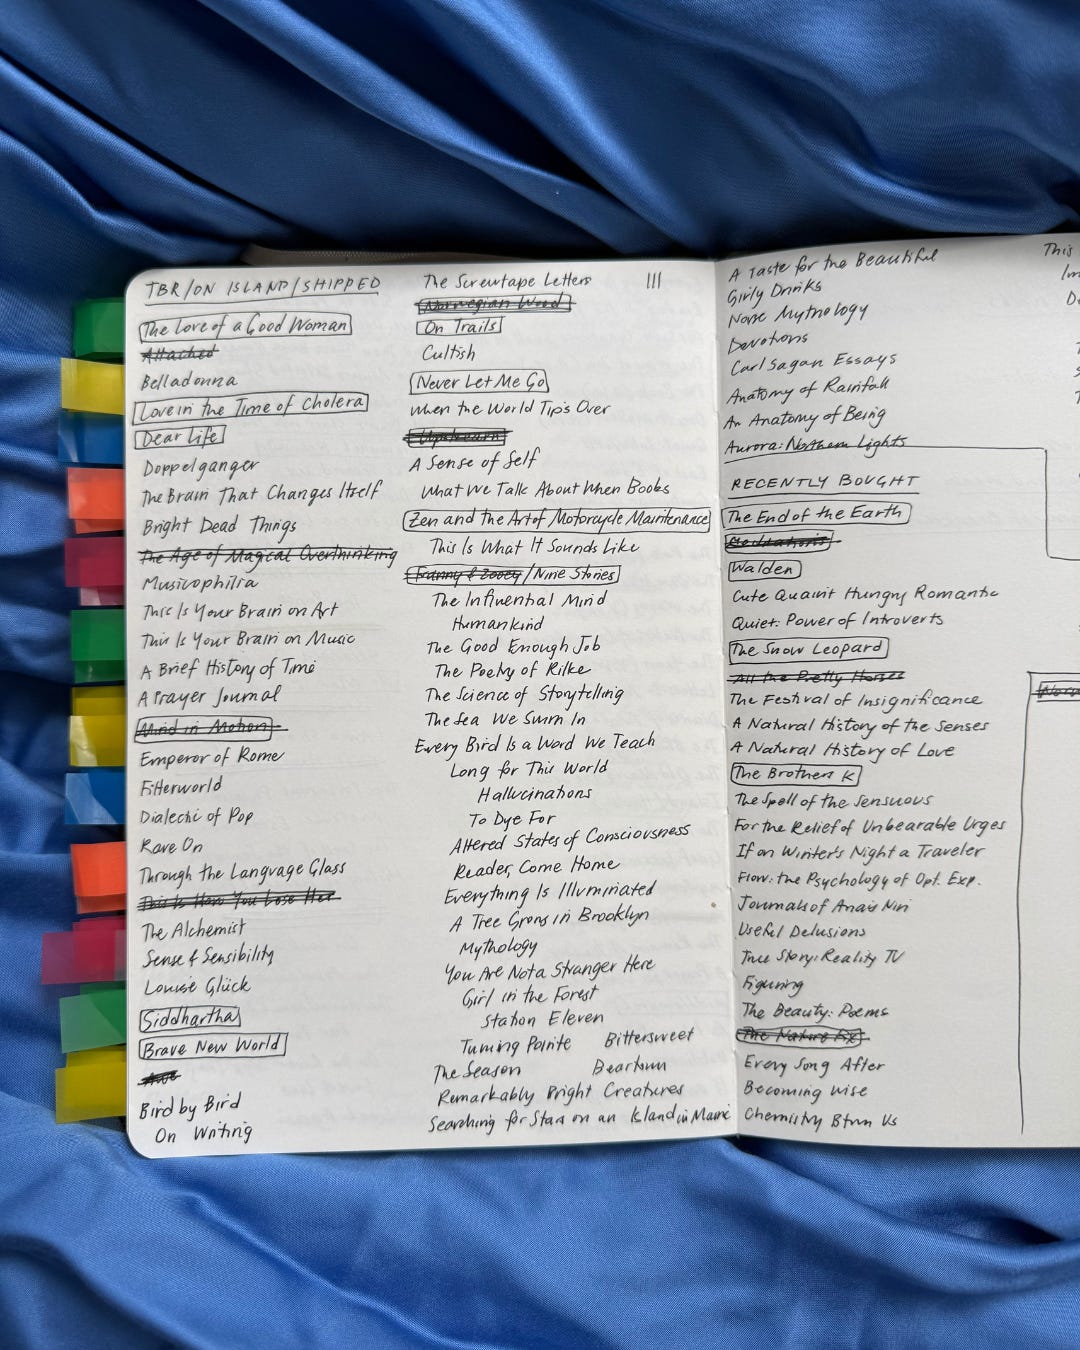 TBR/ON ISLAND/SHIPPED
The Love of a Good Woman
Attached
Belladonna
Love in the Time of Cholera
Dear Life
Doppelganger
The Brain That Changes Itself
Bright Dead Things
The Age of Magical Overthinking
Musicophilia
This Is Your Brain on Art
This Is Your Brain on Music
A Brief History of Time
A Prayer Journal
Mind in Motion
Emperor of Rome
Filterworld
Dialectic of Pop
Rave On
Through the Language Glass
This Is How You Lose Her
The Alchemist
Sense & Sensibility
Louise Glück
Siddhartha
Brave New World
Awe
Bird by Bird
On Writing
The Screwtape Letters
Norwegian Wood
On Trails
Cultish
Never Let Me Go
When the World Tips Over
Upstream
A Sense of Self
What We Talk About When Books
Zen and the Art of Motorcycle Maintenance
This Is What It Sounds Like
Franny & Zooey/Nine Stories
The Influential Mind
Humankind
The Good Enough Job
The Poetry of Rilke
The Science of Storytelling
The Sea We Swim In
Every Bird Is a Word We Teach
Long for This World
Hallucinations
To Dye For
Altered States of Consciousness
Reader, Come Home
Everything Is Illuminated
A Tree Grows in Brooklyn
Mythology
You Are Not a Stranger Here
Girl in the Forest
Station Eleven
Turning Pointe Bittersweet
The Season Beartown
Remarkably Bright Creatures
Searching for Stars on an Island in Maine
III
A Taste for the Beautiful
Girly Drinks
Norse Mythology
Devotions
Carl Sagan Essays
Anatomy of Rainfall
An Anatomy of Being
Aurora: Northern Lights
RECENTLY BOUGHT
The End of the Earth
Meditations
Walden
Cute Quaint Hungry Romantic
Quiet: Power of Introverts
The Snow Leopard
All the Pretty Horses
The Festival of Insignificance
A Natural History of the Senses
A Natural History of Love
The Brothers K
The Spell of the Sensuous
For the Relief of Unbearable Urges
If on Winter's Night a Traveler
Flow: the Psychology of Opt. Exp.
Journals of Anaïs Nin
Useful Delusions
True Story: Reality TV
Figuring
The Beauty: Poems
The Nature Fix
Every Song After
Becoming Wise
Chemistry Btwn Us
This